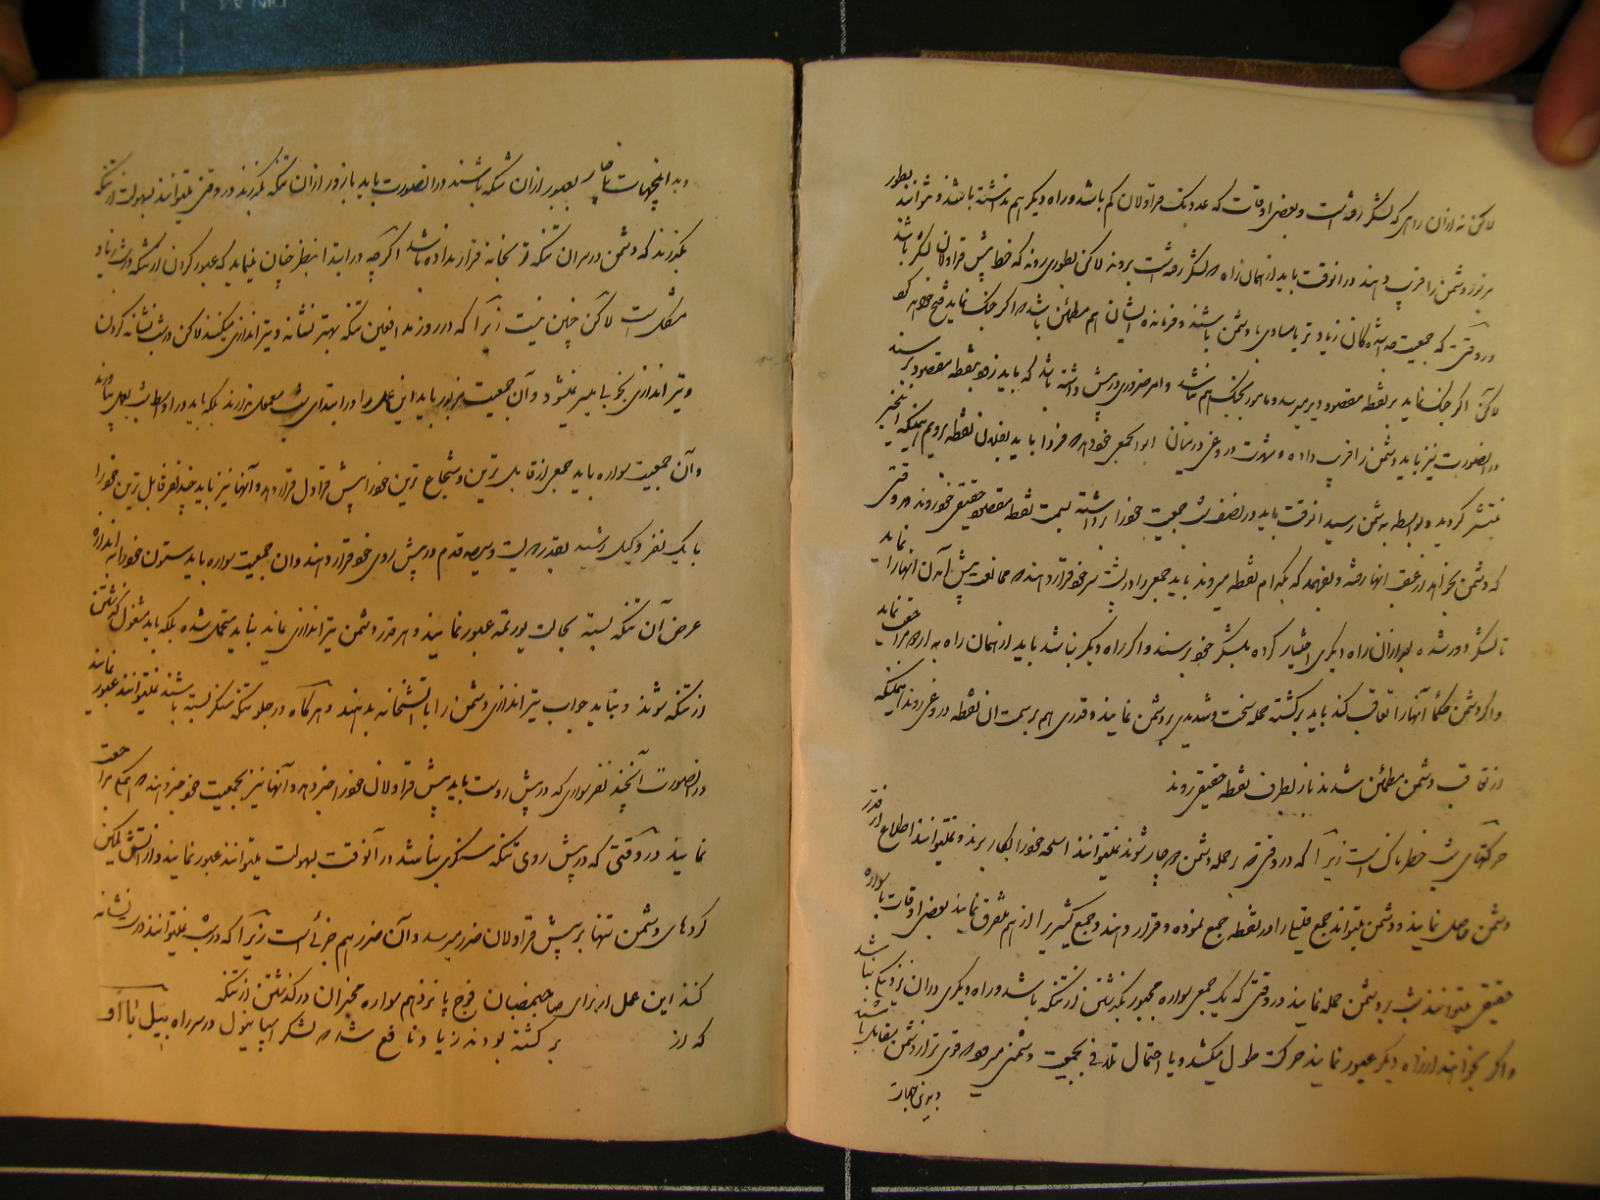 لاکن نه از آن راهی که لشکر رفته است و بعضی اوقات که عدد یک قراولان کم باشد و راه دیگر هم نداشته باشند و بتوانند بطور
مزبور دشمن را فریب دهند در آنوقت باید از همان راه که لشکر رفته است بروند لاکن بطوری روند که خط پیش قراولان لشکر باشد
در وقتی که جمعیت زیادتر یا مساوی با دشمن باشند و فرمانده ایشان هم مطمئن باشد که اگر جنگ نماید فتح خواهد کرد
لاکن اگر جنگ نماید بر نقطه مقصود دیر میرسد و مامور بجنگ هم نباشد و امر ضروری در پیش داشته باشد که باید زود بنقطه مقصود برسند
در اینصورت نیز باید دشمن را فریب داده و شهرت دروغی در میان ابوابجمعی خود دهد که فردا باید بفلان نقطه برویم همینکه این خبر
منتشر گردید و بواسطه بدشمن رسید آنوقت باید در نصف شب جمعیت خود را برداشته بسمت نقطه مقصود حقیقی خود روند در وقتی
که دشمن بخواهد از عقب آنها رفته و بفهمد که بکدام نقطه میروند باید جمعی را در پشت سر خود قرار دهند که ممانعت پیش آمدن آنها را نماید
تا لشکر دور شده بعد از آن راه دیگری اختیار کرده بلشکر خود برسند و اگر راه دیگر نباشد باید از همان راه مراجعت نماید
و اگر دشمن حکماً آنها را تعاقب کند باید برگشته حمله سخت و شدیدی بر دشمن نمایند و قدری هم بر سمت آن نقطه دروغی روند همینکه
از تعاقب دشمن مطمئن شدند باز بطرف نقطه حقیقی روند
حرکتهای شب خطرناک است زیرا که در وقتی که بر حمله دشمن دچار شوند نمیتوانند اسلحه خود را بکار برند و نمیتوانند اطلاع از قدر
دشمن حاصل نمایند و دشمن میتواند جمع قلیل را در نقطه جمع نموده و قرار دهند و جمع کثیر را از هم متفرق نمایند بعضی اوقات سواره
حقیقی میتوانند شب بر دشمن حمله نمایند در وقتی که یک جمعی سواره مجبور بگذشتن از تنگه باشد و راه دیگری در آن نزدیکی نباشد
و اگر بخواهند از راه دیگر عبور نمایند حرکت طول میکشد و یا احتمال تلاقی بجمعیت دشمنی میرود که قوی تر از دشمن مقابل باشند
و بدین جهات
و به اینجهات ناچار بعبور از آن تنگه باشند در اینصورت باید بازور از آن تنگه بگذرند در وقتی میتوانند بسهولت از تنگه
بگذرند که دشمن در سر آن تنگه توپخانه قرار نداده باشد اگر چه در ابتدا بنظر چنان مینماید که عبور کردن از تنگه در شب زیاد
مشکل است لاکن چنین نیست زیرا که در روز مدافعین تنگه بهتر نشانه و تیراندازی میکنند لاکن در شب نشانه کردن
و تیر اندازی بخوبی میسر نمیشود و آن جمعیت مزبور باید این عمل را در ابتدای شب معمول ندارند بلکه باید در اواسط شب بعمل بیاورند
و آن جمعیت سواره باید جمعی از قابل ترین و شجاع ترین خود را پیش قراول قرار دهد و آنها نیز باید چند نفر قابل ترین خود را
با یک نفر وکیل رشید بقدر دویست و سیصد قدم در پیش روی خود قرار دهند و آن جمعیت سواره باید ستون خود را به اندازه
عرض آن تنگه بسته بحالت یورتمه عبور نمایند و هر قدر دشمن تیر اندازی نماید نباید متحمل شده بلکه باید مشغول گذشتن
از تنگه شوند و نباید جواب تیر اندازی دشمن را با آتشخانه بدهند و هرگاه در جلو تنگه سنگر بسته باشند نمیتوانند عبور نمایند
در اینصورت آنچند نفر سواری که در پیش روست باید پیش قراولان خود را خبر دهد و آنها نیز بجمعیت خود خبر دهند که مراجعت
نمایند در وقتی که در پیش روی تنگه سنگری نباشد در آنوقت بسهولت میتوانند عبور نمایند و از آتش
کردهای دشمن تنها بر پیش قراولان ضرر میرسد و آن ضرر هم جزئی است زیرا که در شب نمیتوانند درست نشانه
کنند این عمل از برای صاحبمنصبان فوج پانزدهم سواره مجبران در گذشتن از تنگه
که از برگشته بودند زیاد نافع شد که لشکر اسپانیول در سر راه